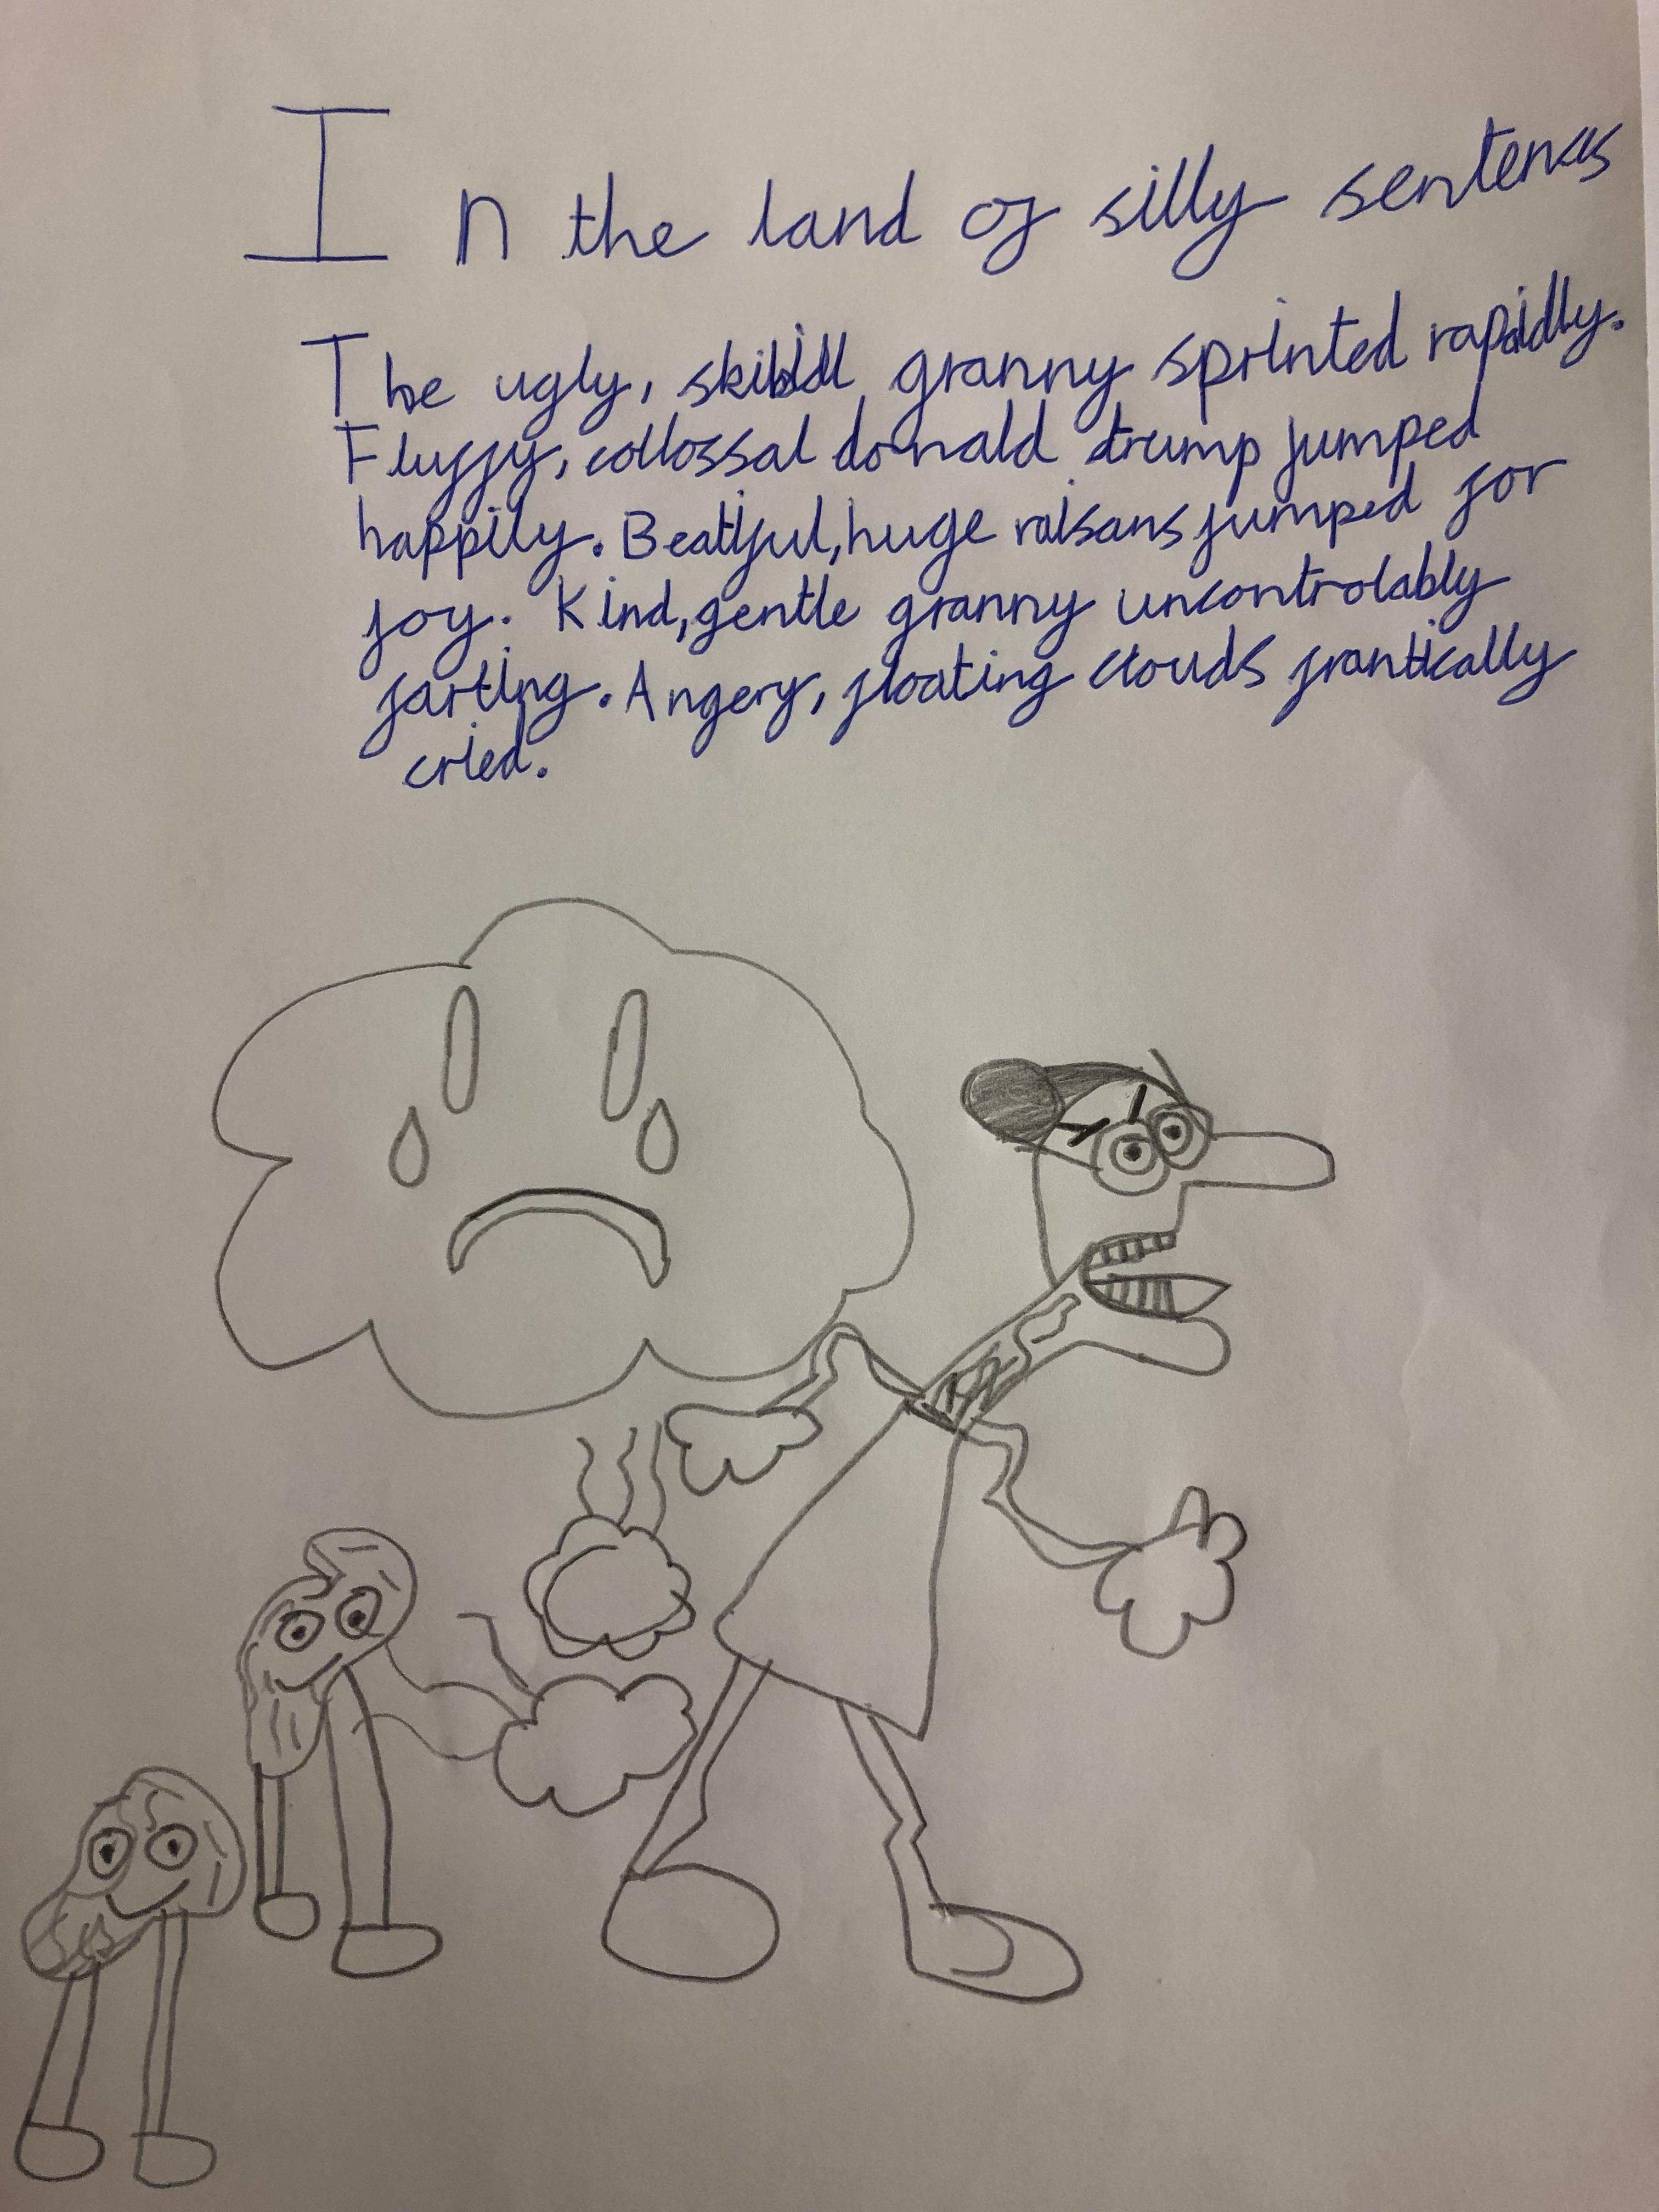 In the land of silly sentences
The ugly, skibidi granny sprinted rapidly.
Fluffy, collossal donald trump jumped
happily. Beatiful, huge raisans jumped for
joy. Kind, gentle granny uncontrolably
farting. Angery, floating clouds frantically
cried.